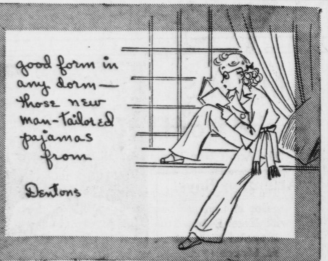 good form in
any dorm—
those new
man-tailored
pajamas
from
Dentons